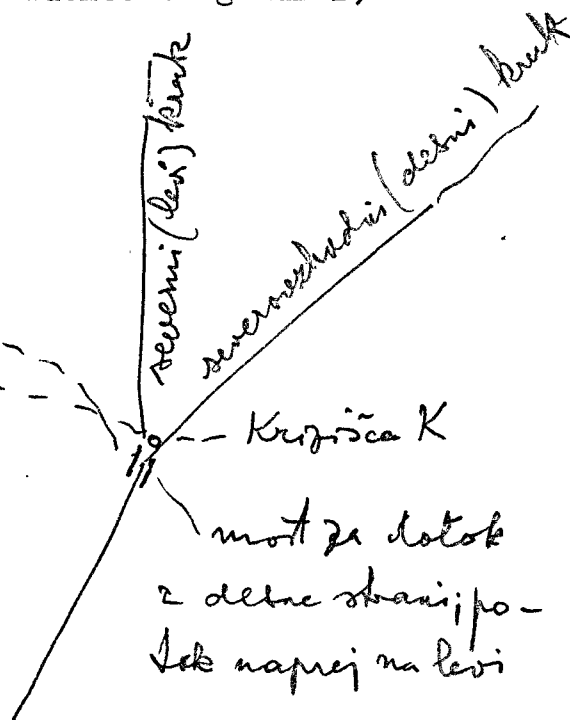 severni (levi) krak
severovzhodni (desni) krak
Križišča K
most za dotok
z desne strani; po-
tok naprej na levi